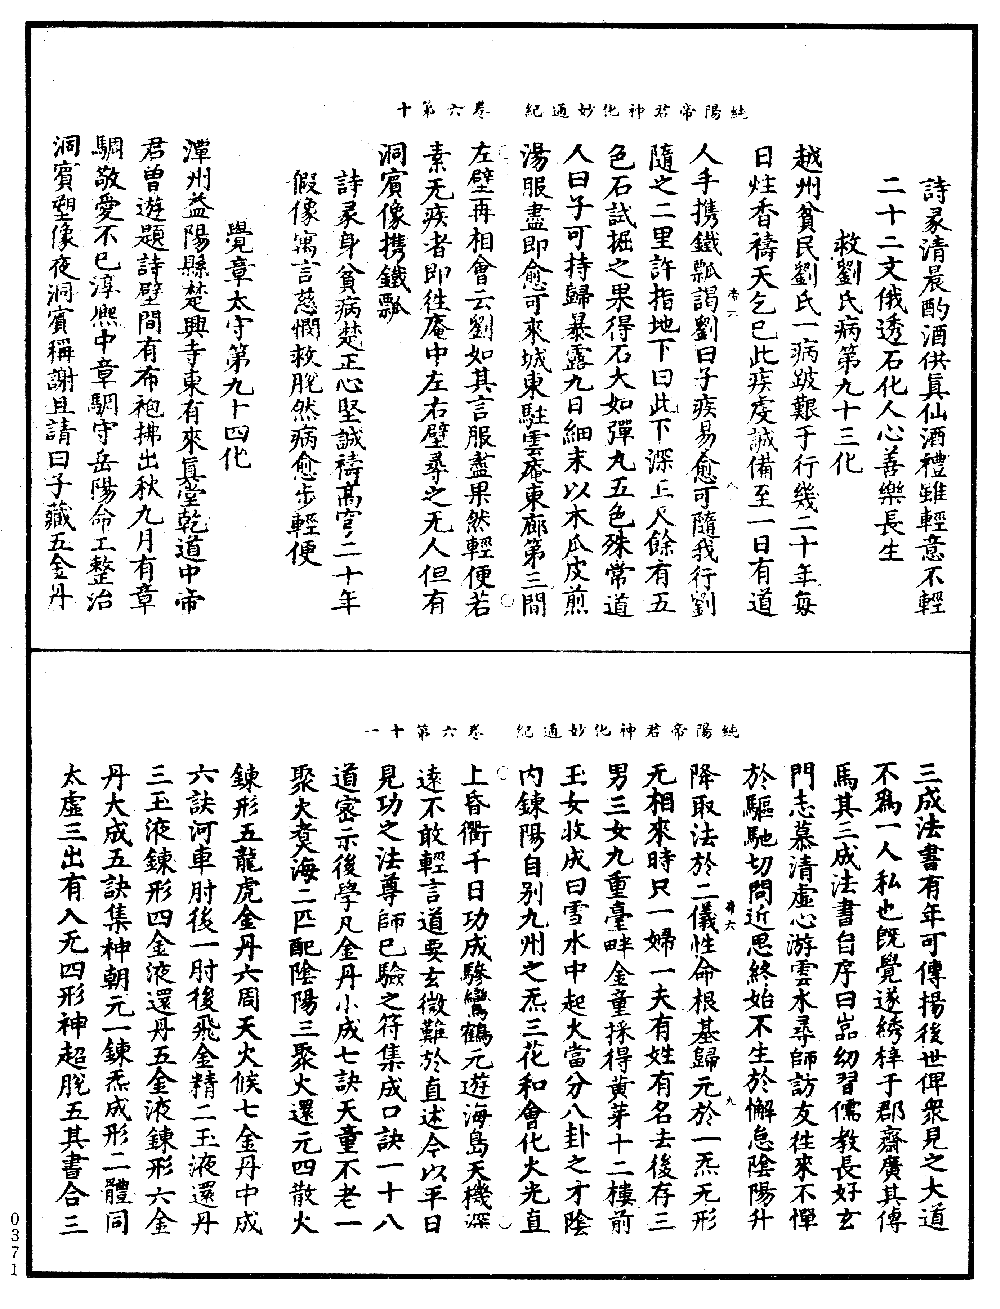 純陽帝君神化妙通紀　卷六第十
詩彔清晨酌酒供真仙酒禮雖輕意不輕
二十二文俄透石化人心善樂長生
救劉氏病第九十三化
越州貧民劉氏一病跛艱于行幾二十年每
日炷香禱天乞已此疾虔誠備至一日有道
人手携鐵瓢謁劉曰子疾易愈可隨我行劉
隨之二里許指地下曰此下深三尺餘有五
色石試掘之果得石大如彈丸五色殊常道
人曰子可持歸暴露九日細末以木瓜皮煎
湯服盡即愈可來城東駐雲庵東廊第三間
左壁再相會云劉如其言服盡果然輕便若
素无疾者即往庵中左右壁尋之无人但有
洞賓像携鐵瓢
詩彔身貧病楚正心堅誠禱髙穹二十年
假像寓言慈憫救脫然病愈步輕便
覺章太守第九十四化
潭州益陽縣楚興寺東有來真堂乾道中帝
君曾遊題詩壁間有布袍拂出秋九月有章
騆敬愛不已淳熈中章騆守岳陽命工整治
洞賓塑像夜洞賓稱謝且請曰子藏五金丹
純陽帝君神化妙通紀　卷六第十一
三成法書有年可傳揚後世俾衆見之大道
不爲一人私也旣覺遂綉梓于郡齋廣其傳
馬其三成法書自序曰嵓幼習儒教長好玄
門志慕清虛心游雲水尋師訪友往來不憚
於驅馳切問近思終始不生於懈怠陰陽升
降取法於二儀性命根基歸元於一炁无形
无相來時只一婦一夫有姓有名去後存三
男三女九重臺畔金童採得黄芽十二樓前
玉女收成白雪水中起火當分八卦之才陰
内鍊陽自别九州之炁三花和會化火光直
上昏衢千日功成驂鸞鶴元遊海島天機深
遠不敢輕言道要玄微難於直述今以平日
見功之法尊師已驗之符集成口訣一十八
道密示後學凡金丹小成七訣天童不老一
聚火煑海二匹配陰陽三聚火還元四散火
鍊形五龍虎金丹六周天火候七金丹中成
六訣河車肘後一肘後飛金精二玉液還丹
三玉液鍊形四金液還丹五金液鍊形六金
丹大成五訣集神朝元一鍊炁成形二體同
太虛三出有入无四形神超脫五其書合三
0371